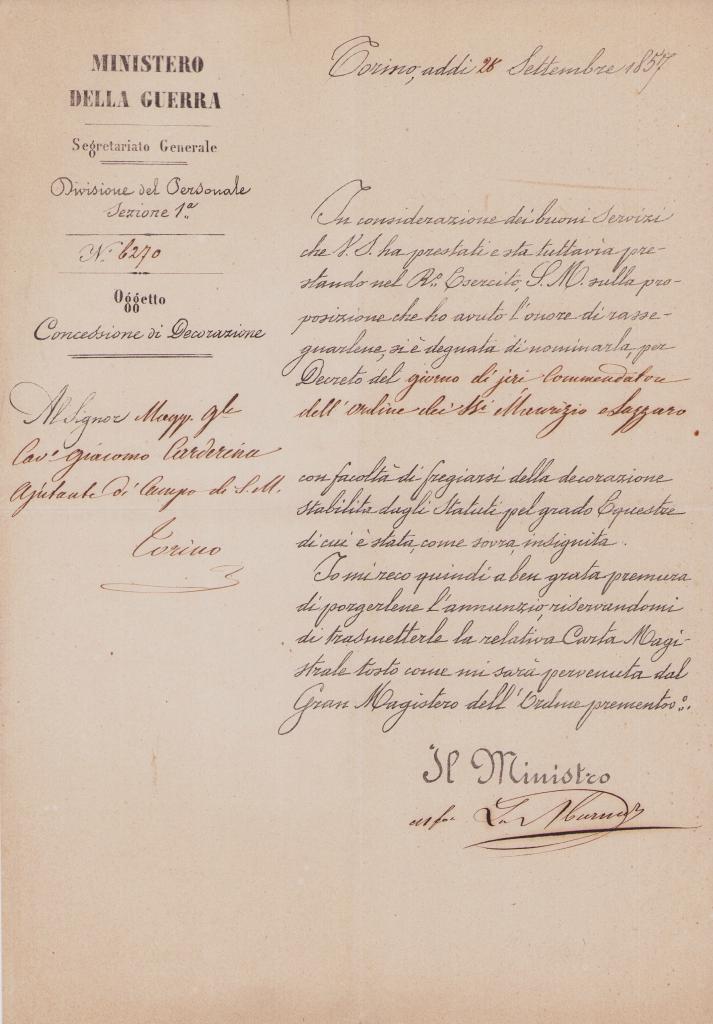 MINISTERO
DELLA GUERRA
Segretariato Generale
Divisione del Personale
Sezione 1ª
N.º 6270
Oggetto
Concessione di Decorazione
Al Signor Magg. Gle
Cavr Giacomo Carderina
Ajutante di Campo di S. M.
Torino
Torino, addi 28 Settembre 1857
In considerazione dei buoni servizi
che V. S. ha prestati e sta tuttavia pre-
stando nel Rº. Esercito, S. M. sulla pro-
posizione che ho avuto l'onore di rasse-
gnarlene, si è degnata di nominarla, per
Decreto del giorno di jeri Commendatore
dell'Ordine dei Sti Maurizio e Lazzaro
con facoltà di fregiarsi della decorazione
stabilita dagli Statuti pel grado Equestre
di cui è stata, come sovra, insignita.
Io mi reco quindi a ben grata premura
di porgerlene l'annunzio, riservandomi
di trasmetterle la relativa Carta Magi-
strale tosto come mi sarà pervenuta dal
Gran Magistero dell'Ordine prementoº.
Il Ministro